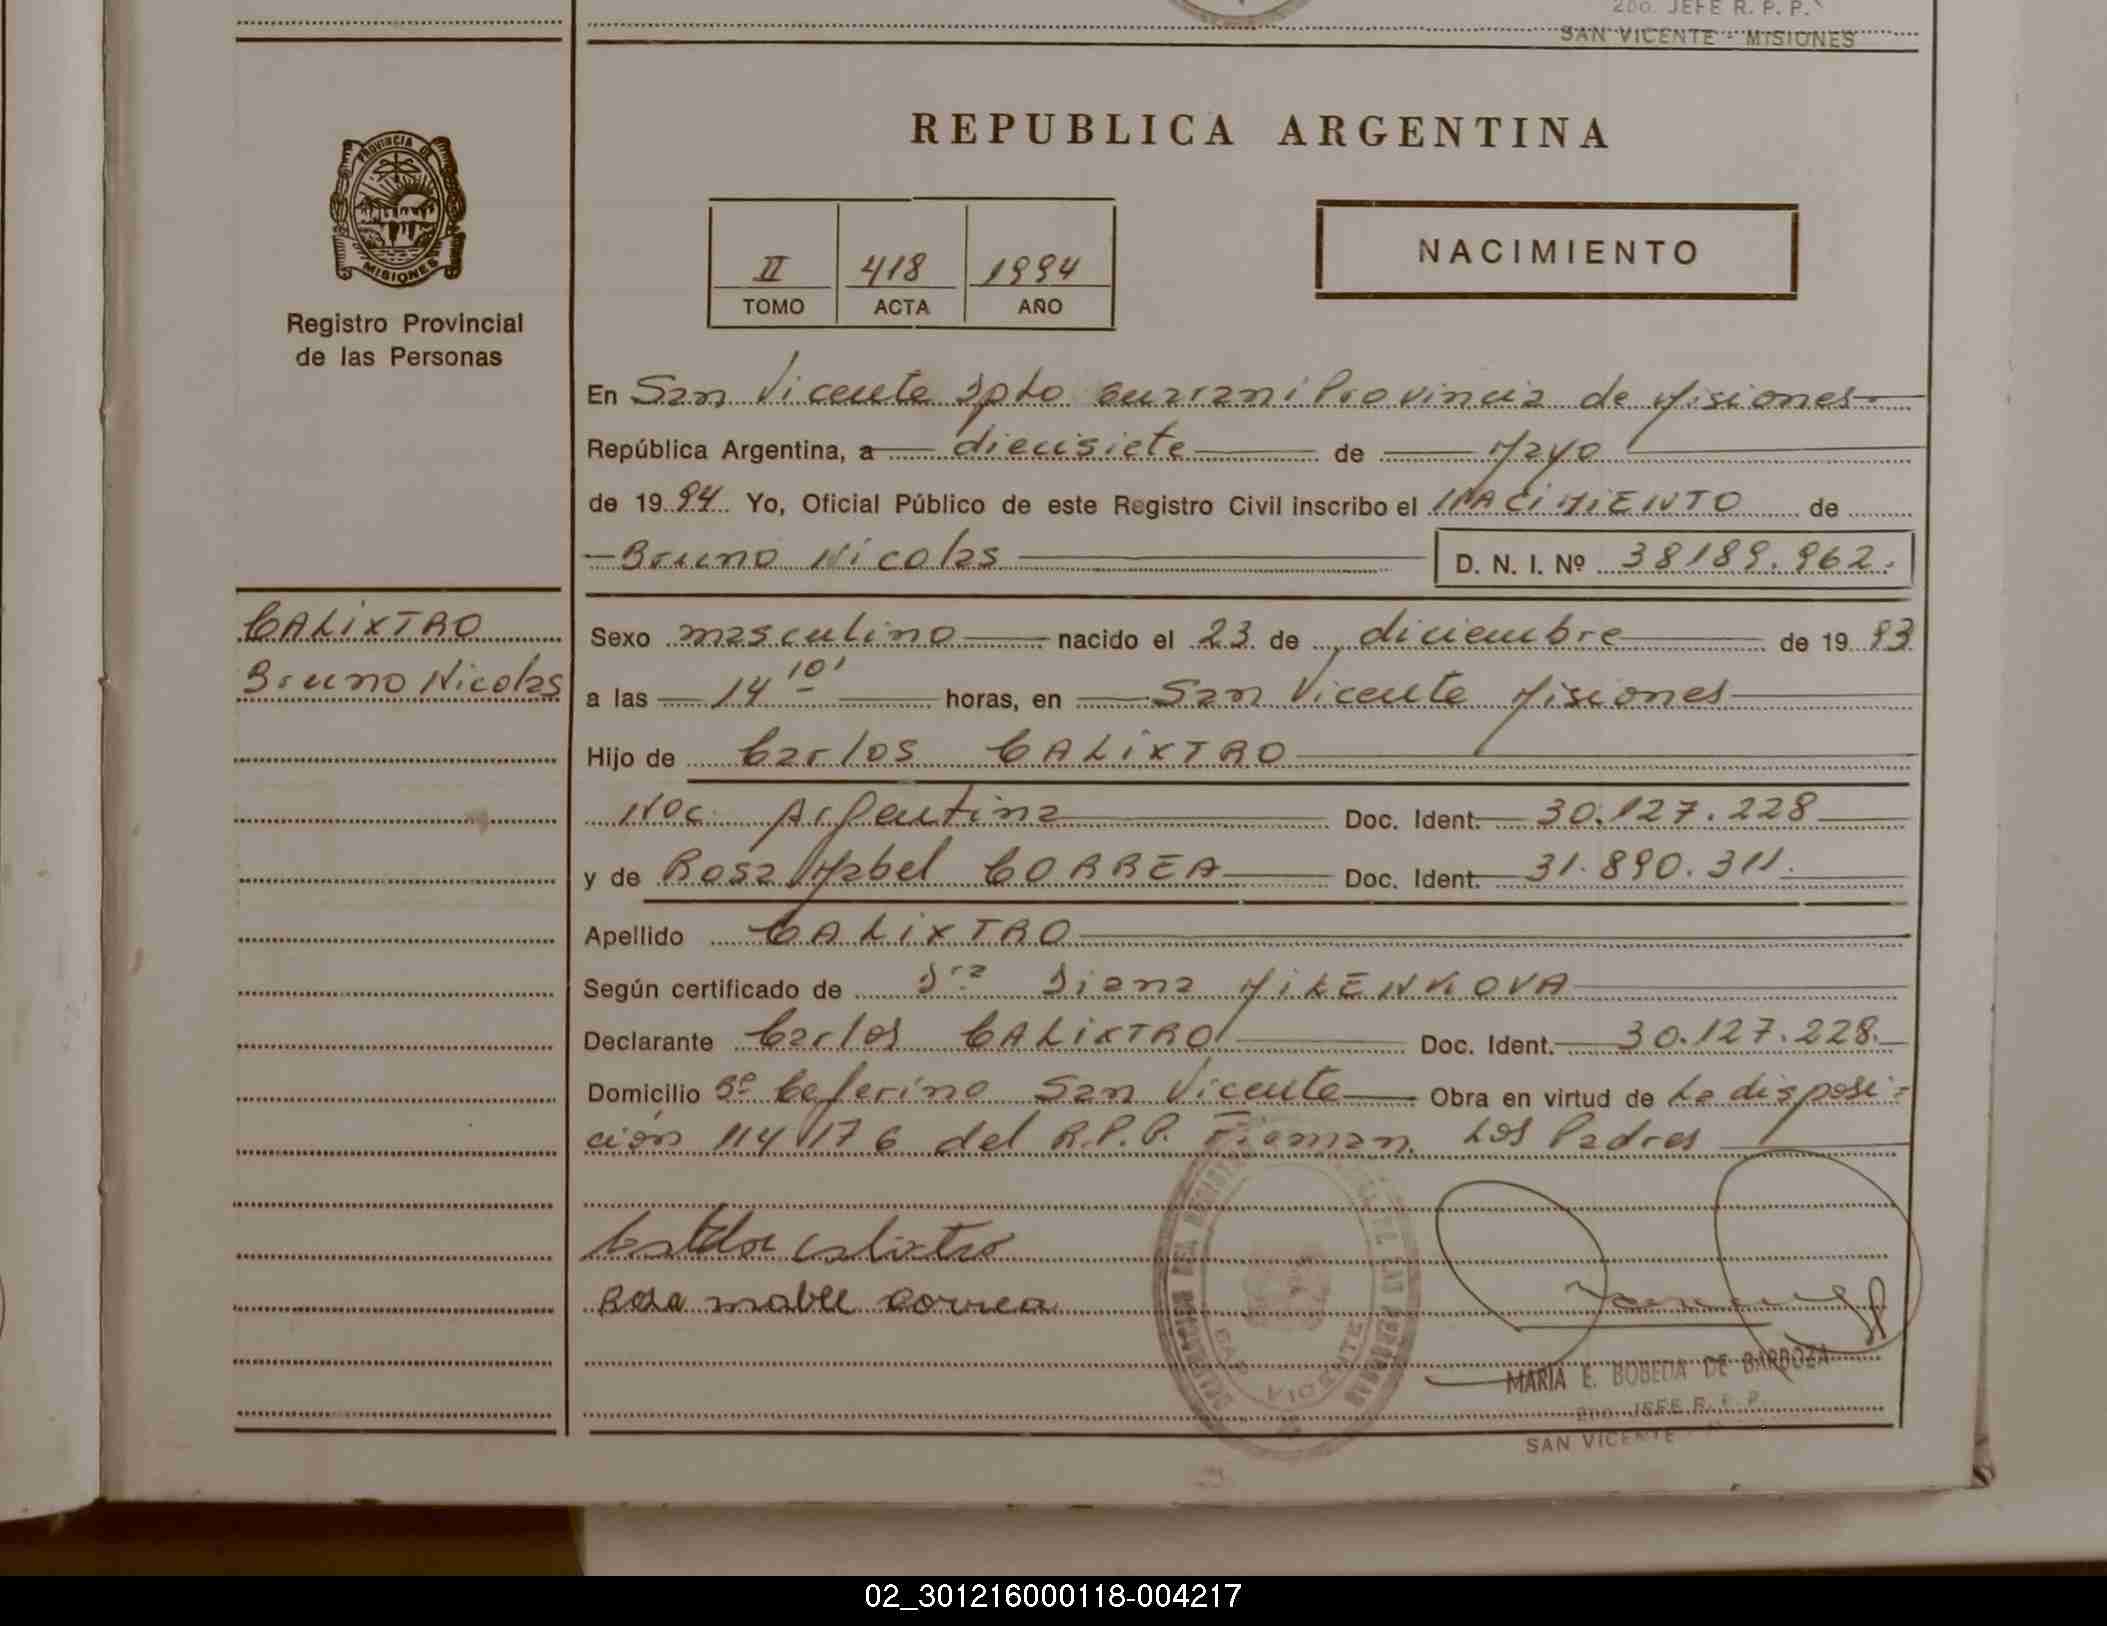 2do. JEFE R. P. P.
SAN VICENTE - MISIONES
PROVINCIA DE
MISIONES
Registro Provincial
de las Personas
REPUBLICA ARGENTINA
II 418 1994
TOMO ACTA AÑO
NACIMIENTO
En San Vicente Dpto Guarani Provincia de Misiones
República Argentina, a diecisiete de Mayo
de 1994 Yo, Oficial Público de este Registro Civil inscribo el NACIMIENTO de
Bruno Nicolas D. N. I. Nº 38189.962.
CALIXTRO
Bruno Nicolas
Sexo masculino nacido el 23 de diciembre de 1993
a las 14 10' horas, en San Vicente Misiones
Hijo de Carlos CALIXTRO
Nac. Argentina Doc. Ident. 30.127.228
y de Rosa Mabel CORREA Doc. Ident. 31.890.311.
Apellido CALIXTRO
Según certificado de Dra Diana MILENKOVA
Declarante Carlos CALIXTRO Doc. Ident. 30.127.228.
Domicilio Bº Ceferino San Vicente Obra en virtud de La disposi-
ción 114/176 del R.P.P. Firman Los Padres
calixtro
Rosa mabel correa
SAN VICENTE
MARIA E. BOBEDA DE BARBOZA
2do. JEFE R. P. P.
SAN VICENTE
02_301216000118-004217